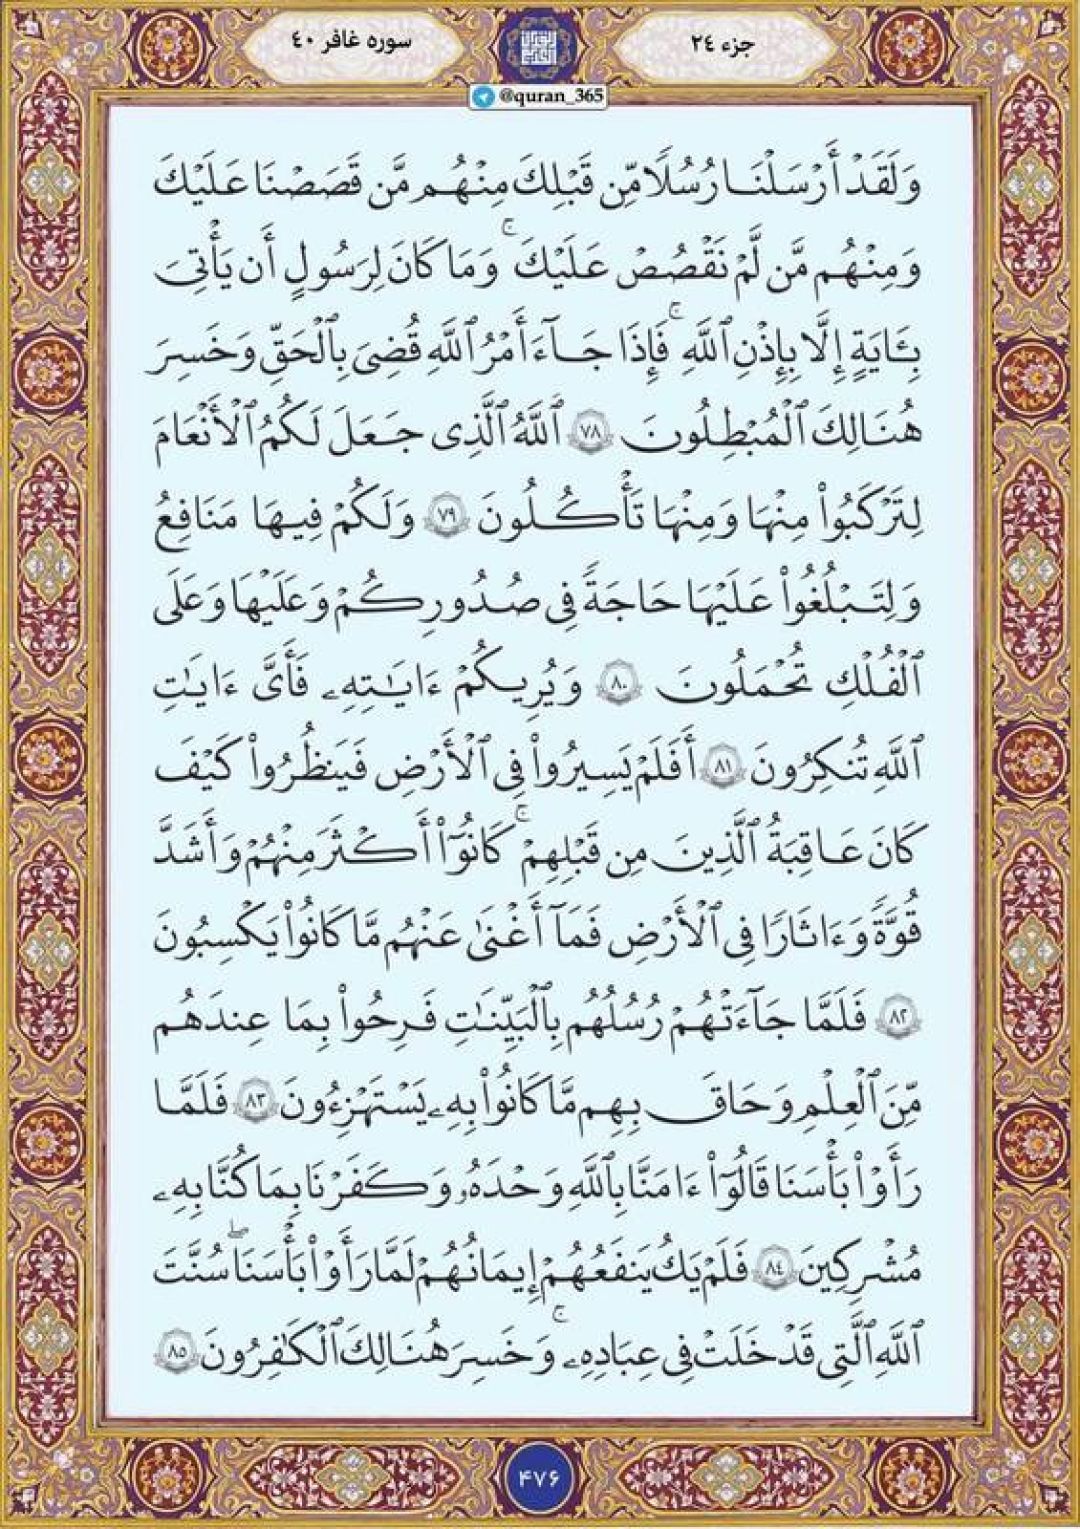 جزء ٢٤
سوره غافر ٤٠
@quran_365
وَلَقَدْ أَرْسَلْنَا رُسُلًا مِّن قَبْلِكَ مِنْهُم مَّن قَصَصْنَا عَلَيْكَ
وَمِنْهُم مَّن لَّمْ نَقْصُصْ عَلَيْكَ ۚ وَمَا كَانَ لِرَسُولٍ أَن يَأْتِىَ
بِـَٔايَةٍ إِلَّا بِإِذْنِ ٱللَّهِ ۚ فَإِذَا جَآءَ أَمْرُ ٱللَّهِ قُضِىَ بِٱلْحَقِّ وَخَسِرَ
هُنَالِكَ ٱلْمُبْطِلُونَ ٧٨ ٱللَّهُ ٱلَّذِى جَعَلَ لَكُمُ ٱلْأَنْعَامَ
لِتَرْكَبُوا۟ مِنْهَا وَمِنْهَا تَأْكُلُونَ ٧٩ وَلَكُمْ فِيهَا مَنَافِعُ
وَلِتَبْلُغُوا۟ عَلَيْهَا حَاجَةً فِى صُدُورِكُمْ وَعَلَيْهَا وَعَلَى
ٱلْفُلْكِ تُحْمَلُونَ ٨٠ وَيُرِيكُمْ ءَايَـٰتِهِۦ فَأَىَّ ءَايَـٰتِ
ٱللَّهِ تُنكِرُونَ ٨١ أَفَلَمْ يَسِيرُوا۟ فِى ٱلْأَرْضِ فَيَنظُرُوا۟ كَيْفَ
كَانَ عَاقِبَةُ ٱلَّذِينَ مِن قَبْلِهِمْ ۚ كَانُوٓا۟ أَكْثَرَ مِنْهُمْ وَأَشَدَّ
قُوَّةً وَءَاثَارًا فِى ٱلْأَرْضِ فَمَآ أَغْنَىٰ عَنْهُم مَّا كَانُوا۟ يَكْسِبُونَ
٨٢ فَلَمَّا جَآءَتْهُمْ رُسُلُهُم بِٱلْبَيِّنَـٰتِ فَرِحُوا۟ بِمَا عِندَهُم
مِّنَ ٱلْعِلْمِ وَحَاقَ بِهِم مَّا كَانُوا۟ بِهِۦ يَسْتَهْزِءُونَ ٨٣ فَلَمَّا
رَأَوْا۟ بَأْسَنَا قَالُوٓا۟ ءَامَنَّا بِٱللَّهِ وَحْدَهُۥ وَكَفَرْنَا بِمَا كُنَّا بِهِۦ
مُشْرِكِينَ ٨٤ فَلَمْ يَكُ يَنفَعُهُمْ إِيمَانُهُمْ لَمَّا رَأَوْا۟ بَأْسَنَا ۖ سُنَّتَ
ٱللَّهِ ٱلَّتِى قَدْ خَلَتْ فِى عِبَادِهِۦ ۚ وَخَسِرَ هُنَالِكَ ٱلْكَـٰفِرُونَ ٨٥
۴۷۶